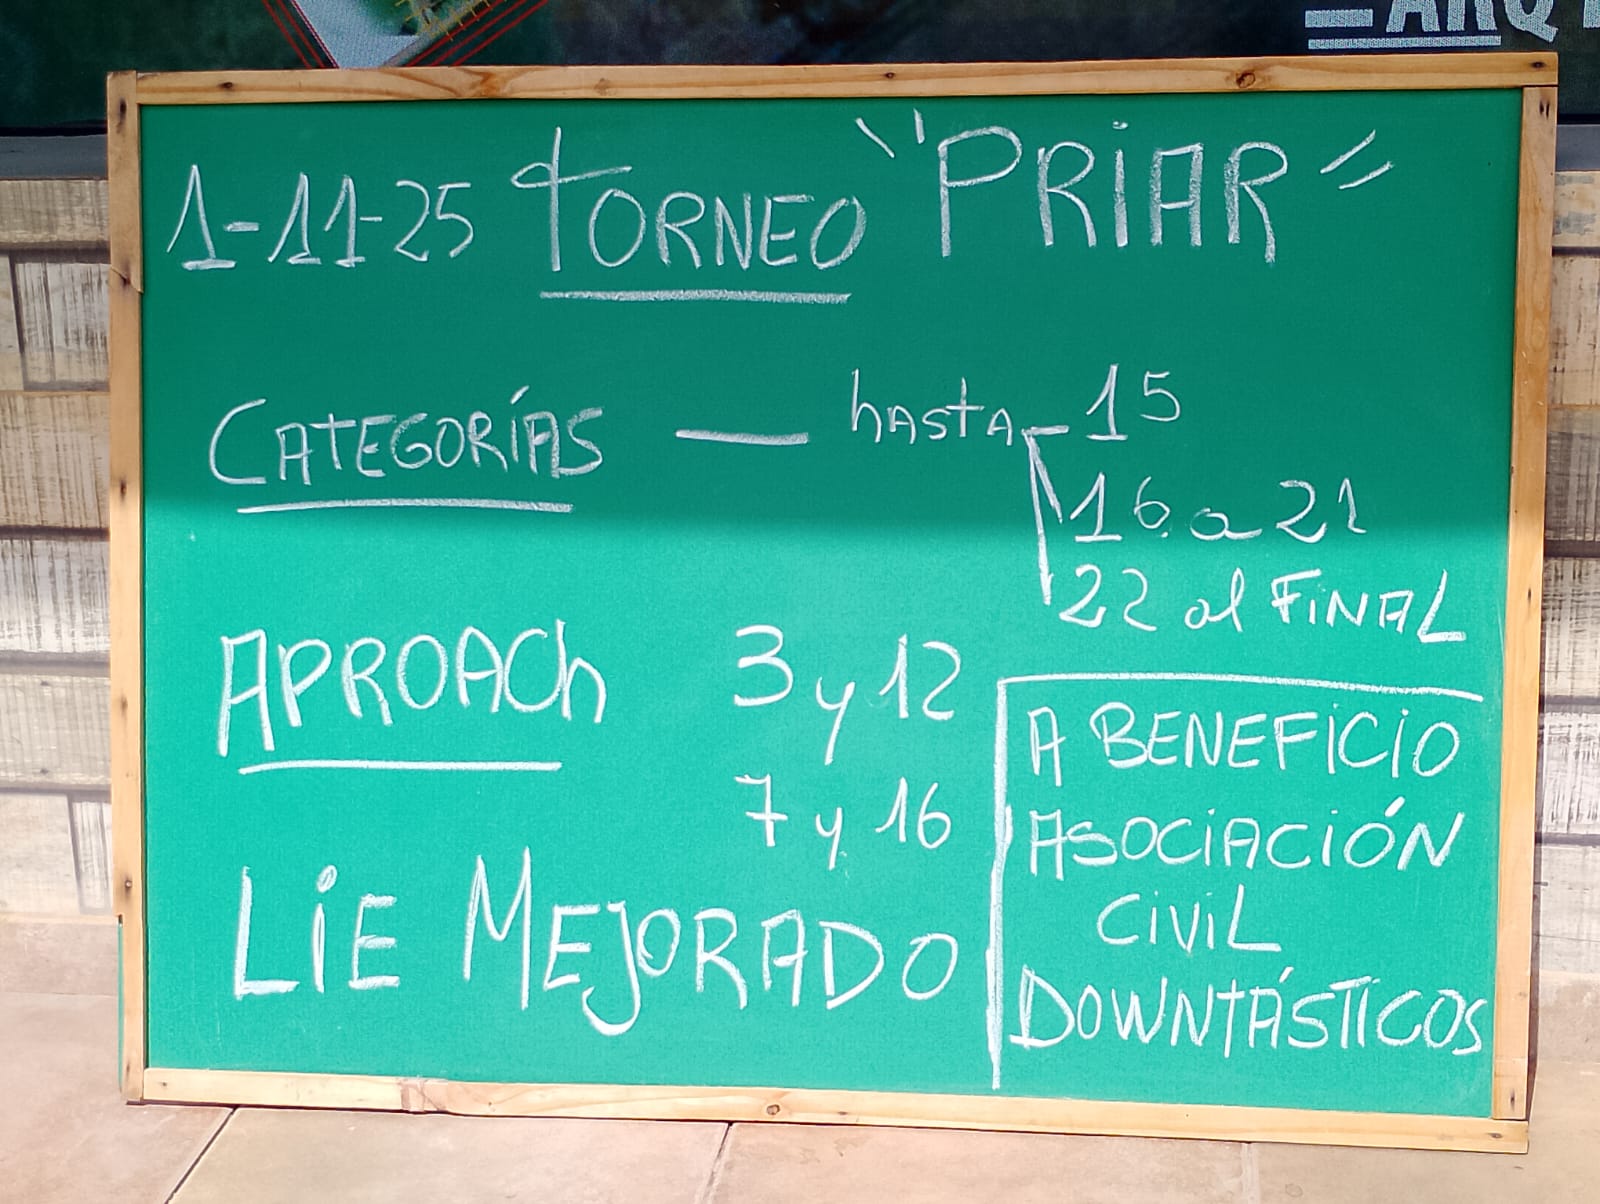 ARQ
1-11-25 TORNEO "PRIAR"
CATEGORÍAS — hASTA - 15
16 a 21
22 al FINAL
APROACh 3 y 12
7 y 16
LIE MEJORADO
A BENEFICIO
ASOCIACIÓN
CIVIL
DOWNTÁSTICOS